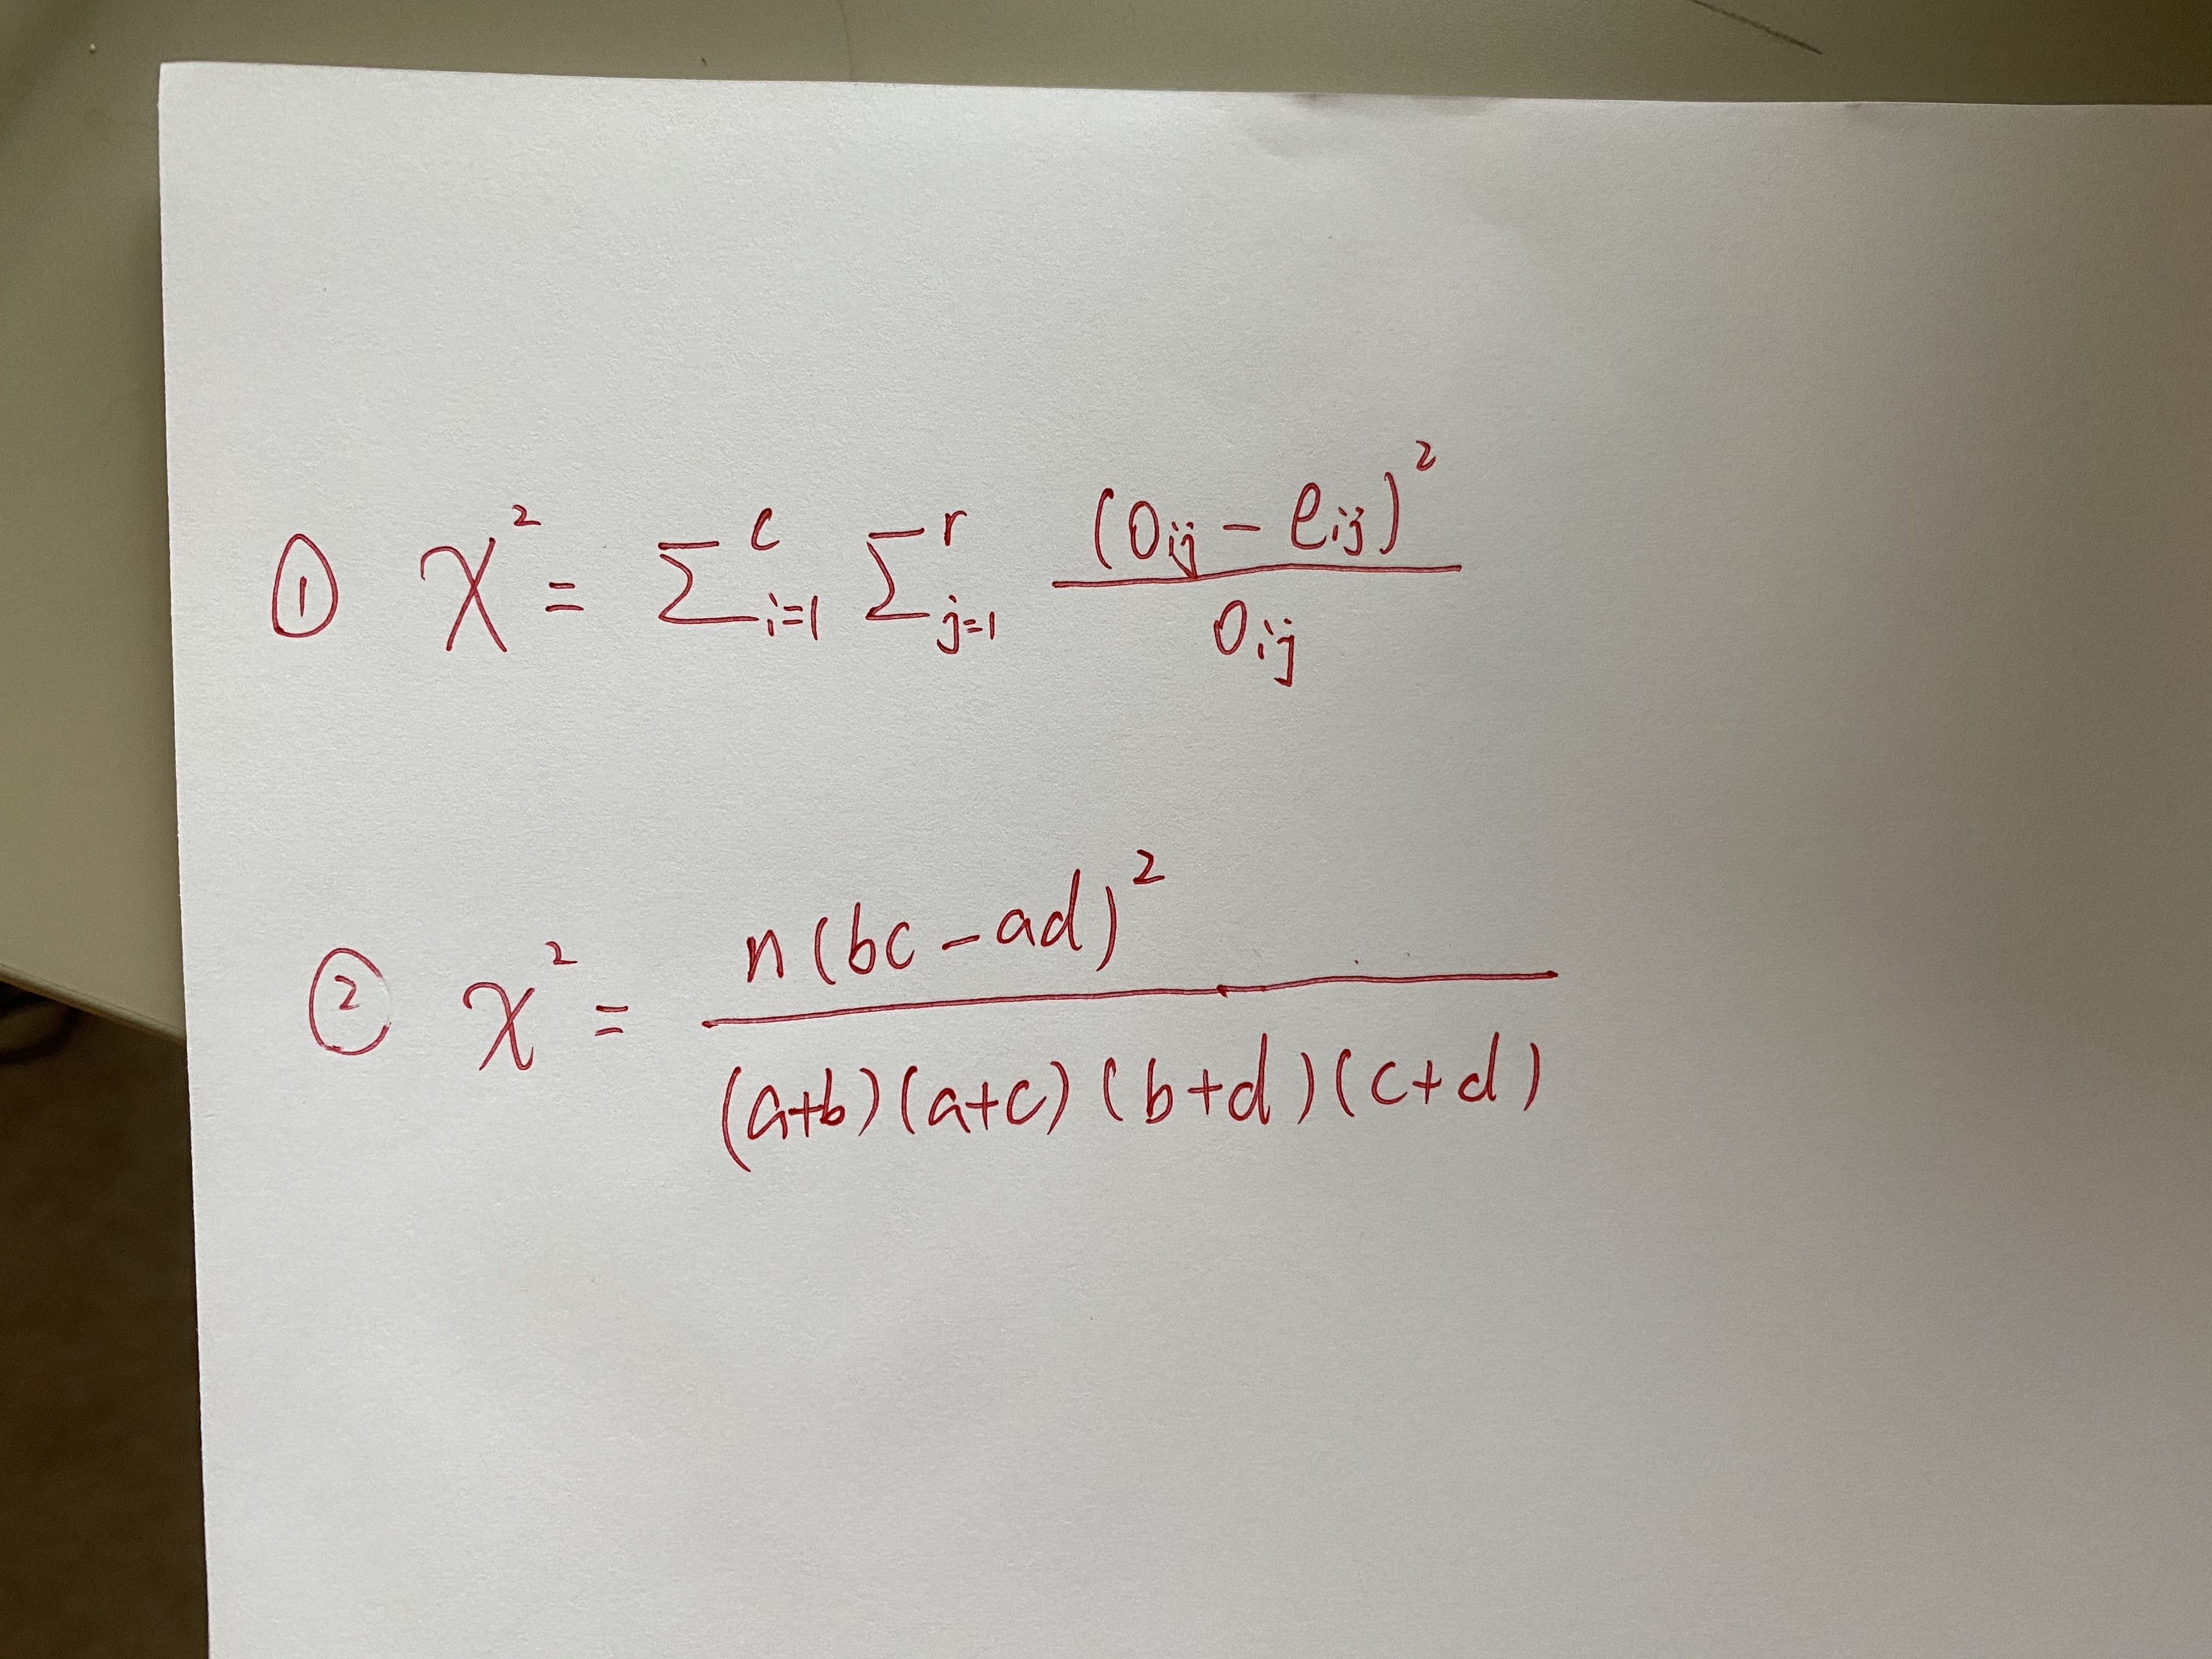 ① χ² = Σᶜᵢ₌₁ Σʳⱼ₌₁ (Oᵢⱼ - eᵢⱼ)² / Oᵢⱼ
② χ² = n(bc - ad)² / (a+b)(a+c)(b+d)(c+d)